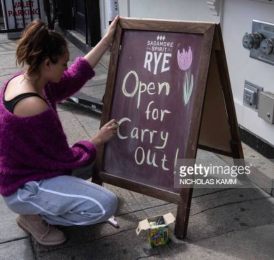 SAGAMORE
SPIRIT
RYE
Open
for
Carry
Out!
gettyimages
NICHOLAS KAMM